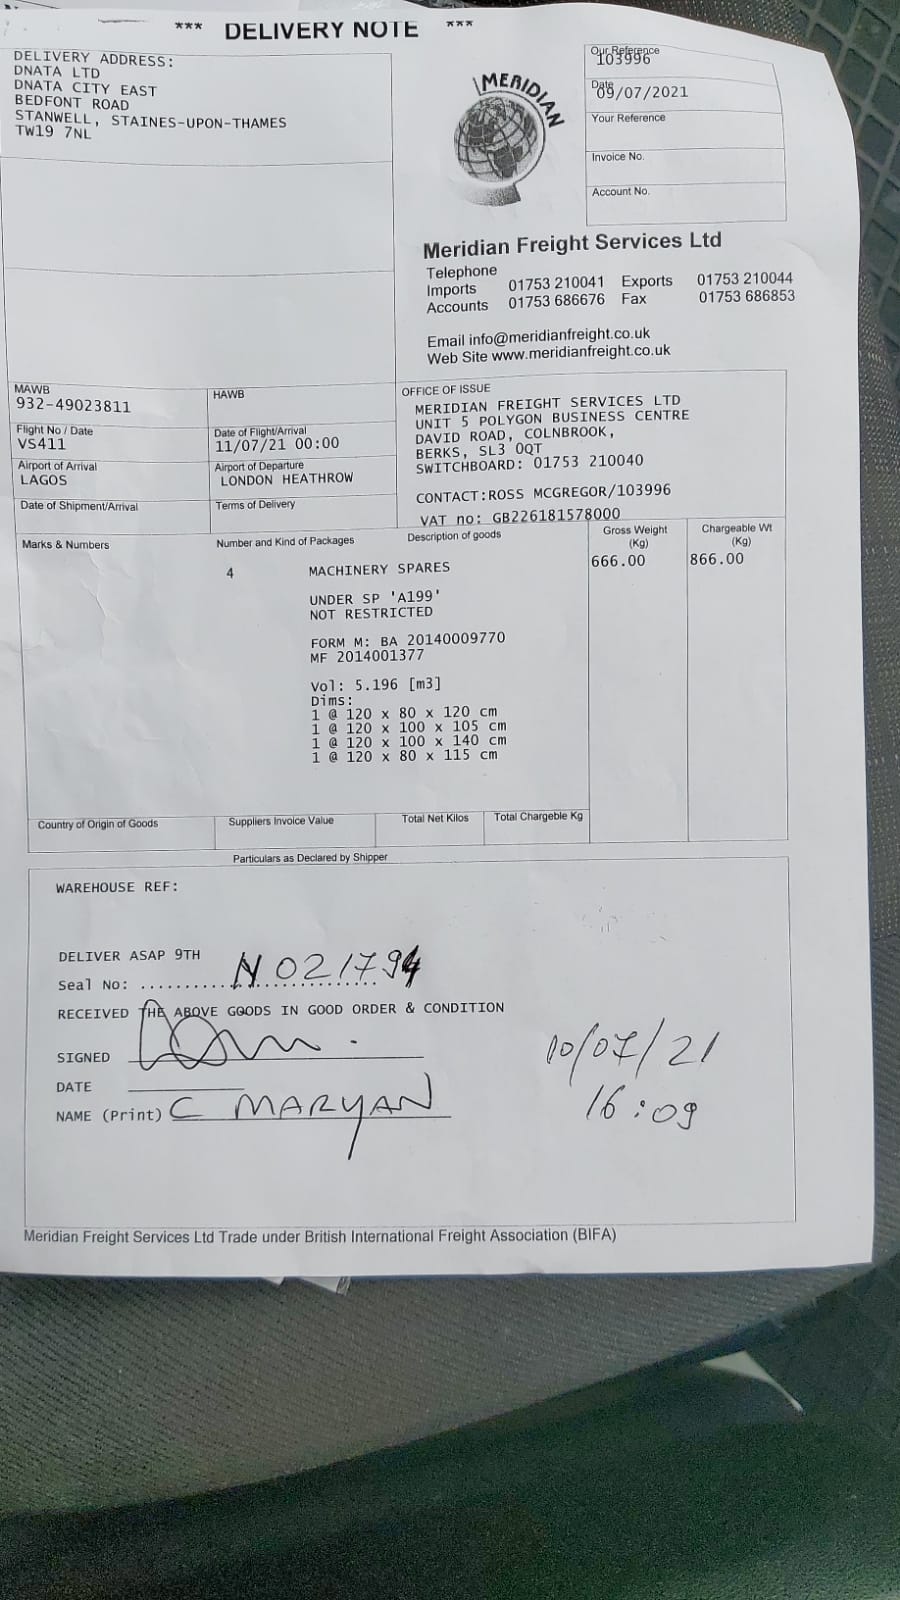 *** DELIVERY NOTE ***
DELIVERY ADDRESS:
DNATA LTD
DNATA CITY EAST
BEDFONT ROAD
STANWELL, STAINES-UPON-THAMES
TW19 7NL
MERIDIAN
Our Reference
103996
Date
09/07/2021
Your Reference
Invoice No.
Account No.
Meridian Freight Services Ltd
Telephone
Imports 01753 210041 Exports 01753 210044
Accounts 01753 686676 Fax 01753 686853
Email info@meridianfreight.co.uk
Web Site www.meridianfreight.co.uk
MAWB
932-49023811
HAWB
Flight No / Date
VS411
Date of Flight/Arrival
11/07/21 00:00
Airport of Arrival
LAGOS
Airport of Departure
LONDON HEATHROW
Date of Shipment/Arrival
Terms of Delivery
OFFICE OF ISSUE
MERIDIAN FREIGHT SERVICES LTD
UNIT 5 POLYGON BUSINESS CENTRE
DAVID ROAD, COLNBROOK,
BERKS, SL3 0QT
SWITCHBOARD: 01753 210040
CONTACT:ROSS MCGREGOR/103996
VAT no: GB226181578000
Marks & Numbers
Number and Kind of Packages
Description of goods
Gross Weight
(Kg)
Chargeable Wt
(Kg)
4 MACHINERY SPARES 666.00 866.00
UNDER SP 'A199'
NOT RESTRICTED
FORM M: BA 20140009770
MF 2014001377
Vol: 5.196 [m3]
Dims:
1 @ 120 x 80 x 120 cm
1 @ 120 x 100 x 105 cm
1 @ 120 x 100 x 140 cm
1 @ 120 x 80 x 115 cm
Country of Origin of Goods
Suppliers Invoice Value
Total Net Kilos
Total Chargeble Kg
Particulars as Declared by Shipper
WAREHOUSE REF:
DELIVER ASAP 9TH
Seal No: .............................. N021794
RECEIVED THE ABOVE GOODS IN GOOD ORDER & CONDITION
SIGNED
10/07/21
DATE
NAME (Print) C MARYAN
16:09
Meridian Freight Services Ltd Trade under British International Freight Association (BIFA)